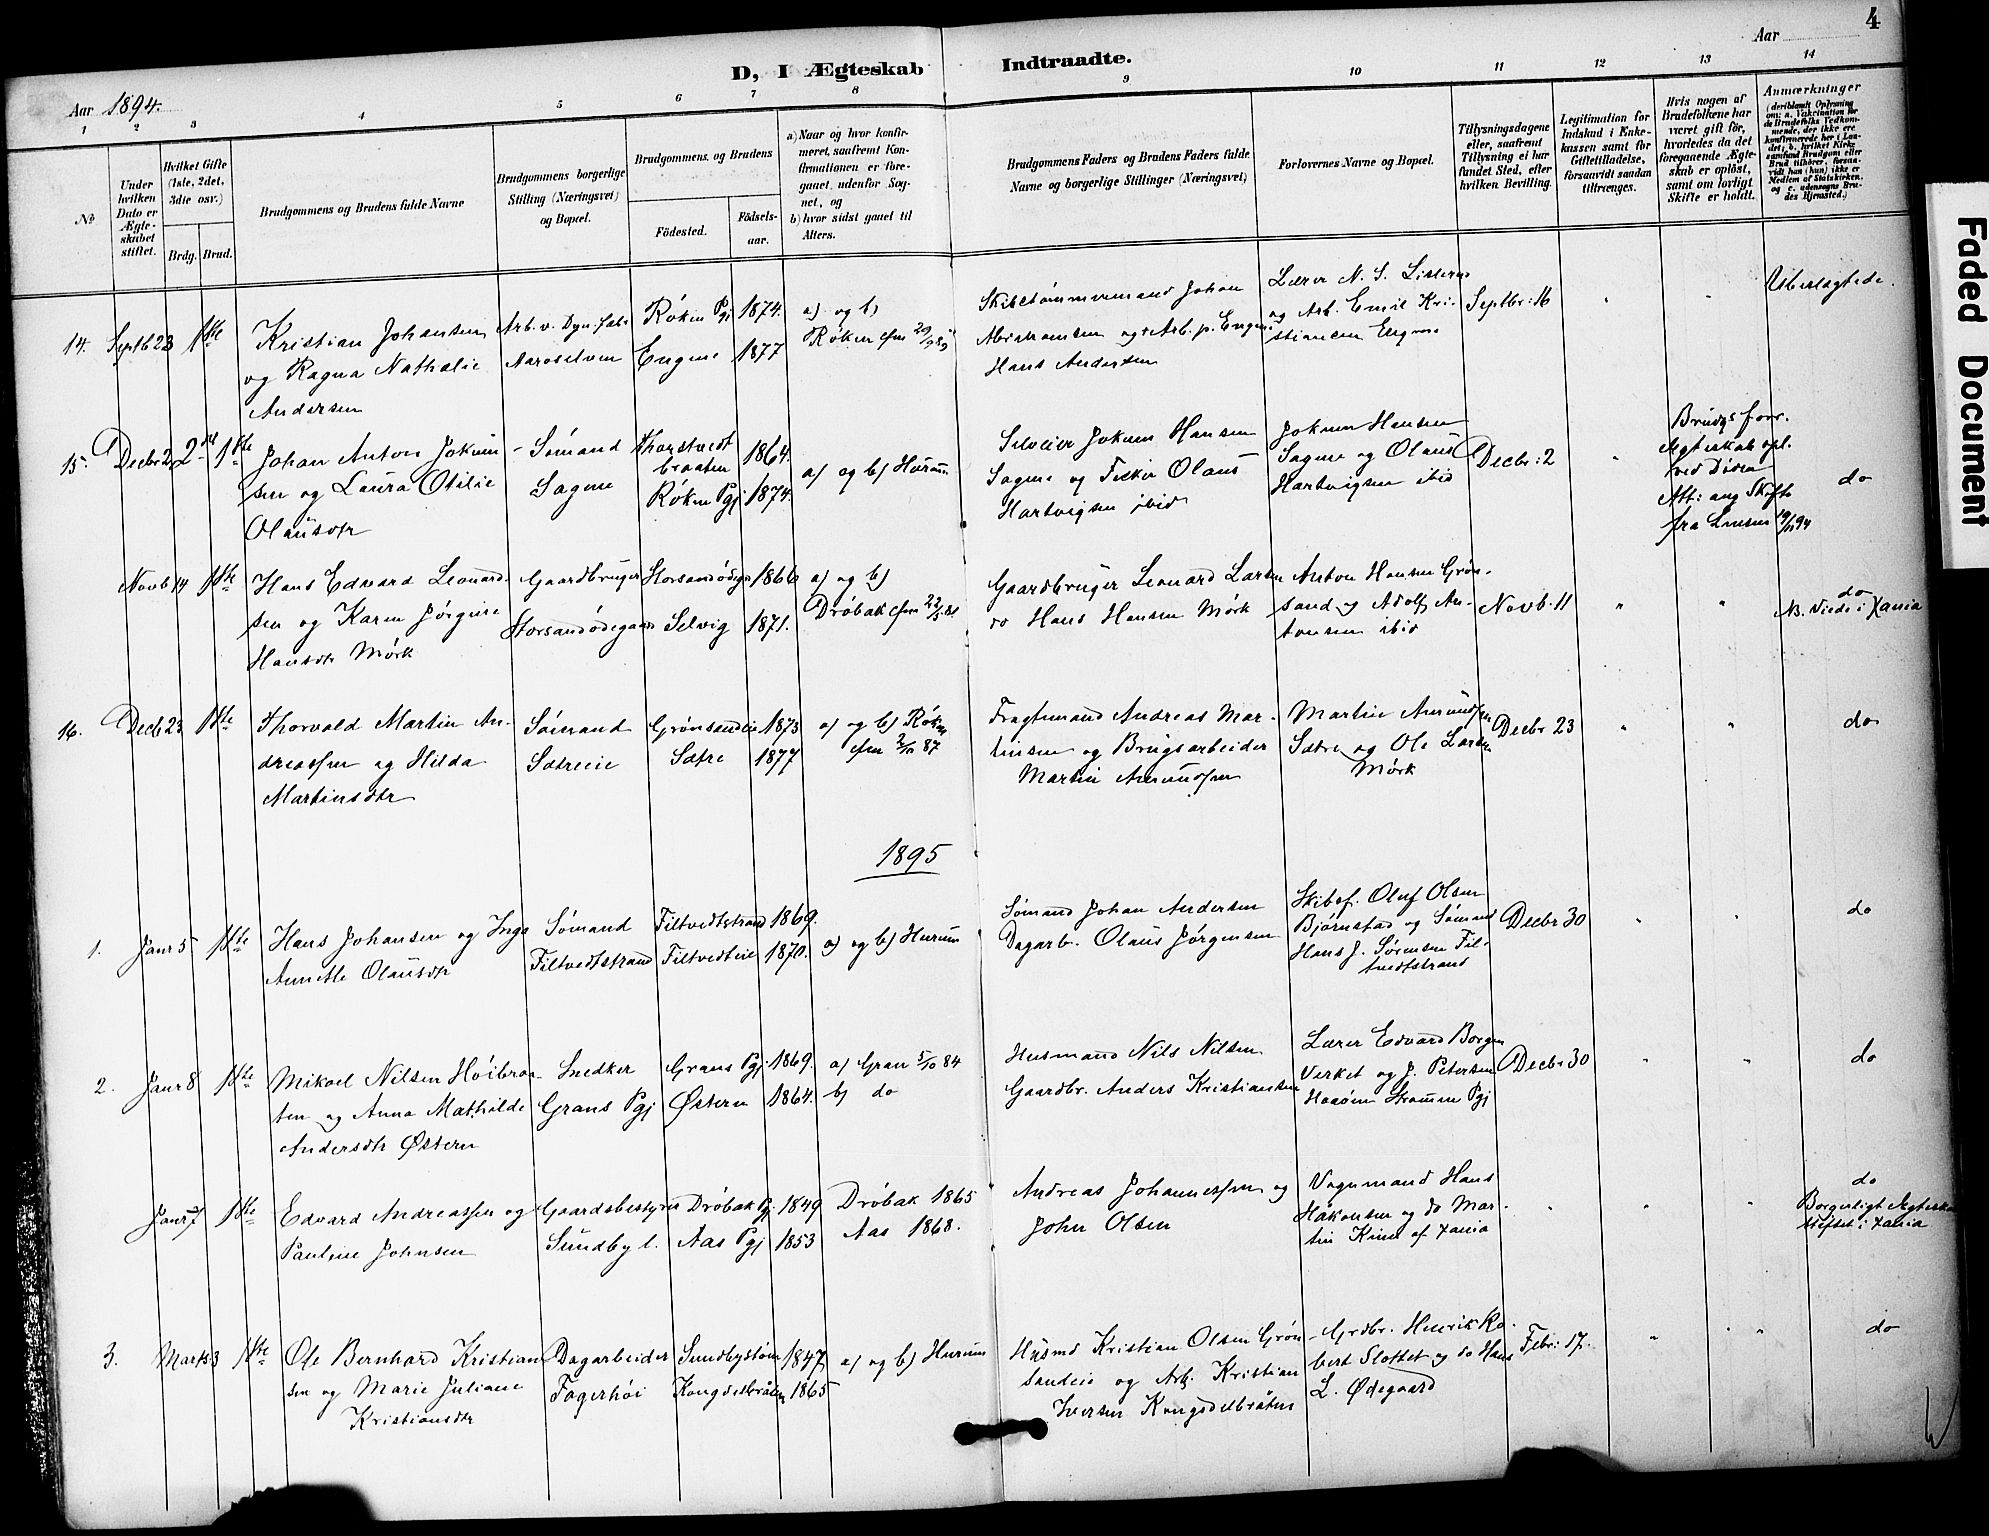 4
D, I Ægteskab Indtraadte.
Aar 1894.
Aar
1 2 3 4 5 6 7 8 9 10 11 12 13 14
No
Under hvilken Dato er Ægteskabet stiftet.
Hvilket Gifte (1ste, 2det, 3die osv.)
Brdg. Brud.
Brudgommens og Brudens fulde Navne
Brudgommens borgerlige Stilling (Næringsvei) og Bopæl.
Brudgommens og Brudens
Födested.
Födselsaar.
a) Naar og hvor konfirmeret, saafremt Konfirmationen er foregaaet udenfor Sognet, og
b) hvor sidst gaaet til Alters.
Brudgommens Faders og Brudens Faders fulde Navne og borgerlige Stillinger (Næringsvei)
Forlovernes Navne og Bopæl.
Tillysningsdagene eller, saafremt Tillysning ei har fundet Sted, efter hvilken Bevilling.
Legitimation for Indskud i Enkekassen samt for Giftetilladelse, forsaavidt saadan tiltrænges.
Hvis nogen af Brudefolkene har været gift før, hvorledes da det foregaaende Ægteskab er opløst, samt om lovligt Skifte er holdt.
Anmærkninger
(deriblandt Oplysning om: a. Vakcination for de Brudefolks Vedkommende, der ikke ere konfirmerede her i Landet; b. hvilket Kirkesamfund Brudgom eller Brud tilhører, forsaavidt han (hun) ikke er Medlem af Statskirken, og c. udensogns Brudes Hjemsted.)
14. Septb 23 1ste
Kristian Johansen
og Ragna Nathalie
Andersen
Arb. v. Dyn. fabr
Aaroselven
Røken Pgj 1874.
Engene 1877
a) og b)
Røken
Skibstømmermand Johan
Abrahamsen og Arb. p. Engene
Hans Andersen
Lærer N. S. Listerud
og Arb. Emil Kristiansen Engene
Septbr: 16
" "
Ubeslægtede.
15. Decbr 2 1ste
Johan Anton Jokumsen og Laura Otilie
Olausdtr
Sømand
Sagene
braaten 1864.
Røken Pgj 1874.
a) og b) Hurum
Selveier Jokum Hansen
Sagene og Fisker Olaus
Hartvigsen ibid
Jokum Hansen
Sagene og Olaus
Hartvigsen ibid
Decbr: 2
"
Brudgs forr.
Ægteskab opl.
ved Døden
Att: ang Skifte
fra
do
Novb 14 1ste
Hans Edvard Leonardsen og Karen Jørgine
Hansdtr Mørk
Gaardbruger
Storsandødegaard
Storsandødegd 1866
Selvig 1871.
a) og b)
Drøbak
Gaardbruger Leonard Larsen
do Hans Hansen Mørk
Anton Hansen Grønsand og Adolf Antonsen ibid
Novb. 11
" "
do
NB. Viede i Xania
16. Decbr 23 1ste
Thorvald Martin Andreassen og Hilda
Martinsdtr
Sømand
Sætreeie
Grønsandeie 1873
Sætre 1877
a) og b) Røken
Fragtemand Andreas Martinsen og Brugsarbeider
Martin Amundsen
Martin Amundsen
Sætre og Ole Larsen
Mørk
Decbr 23
" "
do
1895
1. Janr 5 1ste
Hans Johansen og Inga
Annette Olausdtr
Sømand
Filtvedtstrand
Filtvedtstrand 1869.
Filtvedteie 1870.
a) og b) Hurum
Sømand Johan Andersen
Dagarb. Olaus Jørgensen
Skibsf. Oluf Olsen
Bjørnstad og Sømand
Hans J. Sørensen Filtvedtstrand
Decbr 30
" "
do
2. Janr 8 1ste
Mikael Nilsen Høibraaten og Anna Mathilde
Andersdtr Østern
Snedker
Grans Pgj
Grans Pgj. 1869.
Østern 1864.
a) Gran 5/10 84
b) do
Husmand Nils Nilsen
Gaardbr. Anders Kristiansen
Lærer Edvard Borgen
Verket og J. Petersen
Strømm Pgj
Decbr 30
" "
do
Janr 7 1ste
Edvard Andreassen og
Pauline Johnsen
Gaardsbestyrer
Sundby l.
Drøbak Pgj. 1849
Aas Pgj 1853
Drøbak 1865
Aas 1868.
Andreas Johannessen og
John Olsen
Vognmand Hans
Håkonsen og do Martin af Xania
" " "
do
Borgerligt Ægteskab
stiftet i Xania
3. Marts 3 1ste
Ole Bernhard Kristiansen og Marie Juliane
Kristiansdtr
Dagarbeider
Fagerhøi
1847
Kongsdelbråten 1865
a) og b) Hurum
Husmd Kristian Olsen Grønsandeie og Arb. Kristian
Iversen Kongsdelbråten
Grdbr. Henrik Robert Slottet og do Hans
L. Ødegaard
Febr: 17.
" "
do
Faded Document